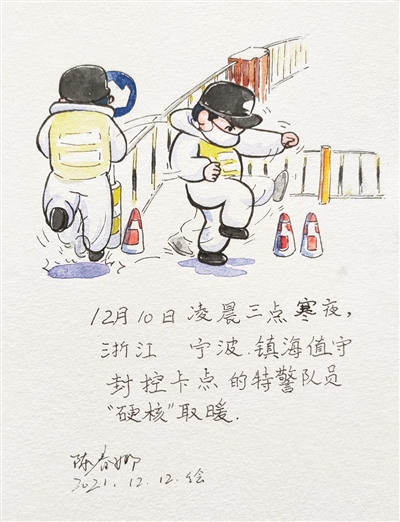 12月10日凌晨三点寒夜,
浙江 宁波.镇海值守
封控卡点的特警队员
“硬核”取暖.
陈春娜
2021.12.12.绘